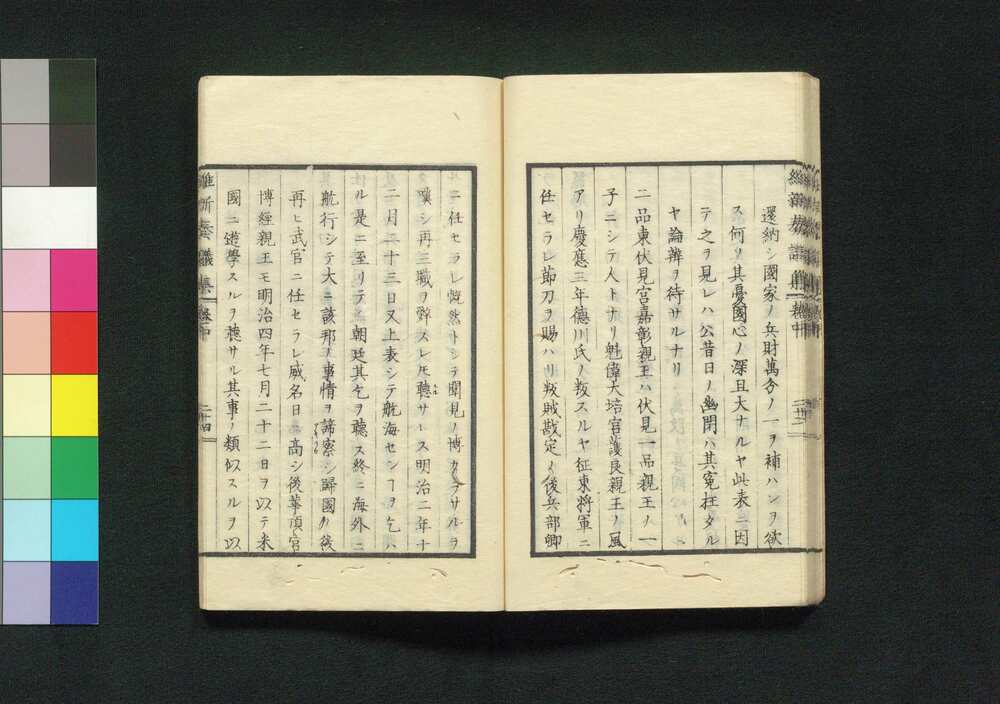 還納シ國家ノ兵財萬分ノ一ヲ補ハンヲ欲
ス何ソ其憂國心ノ深且大ナルヤ此表ニ因
テ之ヲ見レハ公昔日ノ幽閉ハ其寃枉タル
ヤ論辨ヲ待サルナリ
二品東伏見宮嘉彰親王ハ伏見一品親王ノ一
子ニシテ人トナリ魁偉大塔宮護良親王ノ風
アリ慶應三年德川氏ノ叛スルヤ征東將軍ニ
任セラレ節刀ヲ賜ハリ叛賊戡定ノ後兵部卿
ニ任セラレ慨然トシテ聞見ノ博カラサルヲ
嘆シ再三職ヲ辭スレ𪜈聽サレス明治二年十
二月二十三日又上表シテ航海センヿヲ乞ハ
ル是ニ至リテ朝廷其乞ヲ聽ス終ニ海外ニ
航行シテ大ニ該邦ノ事情ヲ諦察シ歸國ノ後
再ヒ武官ニ任セラレ威名日ニ高シ後華頂宮
博經親王モ明治四年七月二十二日ヲ以テ米
國ニ遊學スルヲ聽サル其事ノ類似スルヲ以
維新奏議集 卷中 二十四